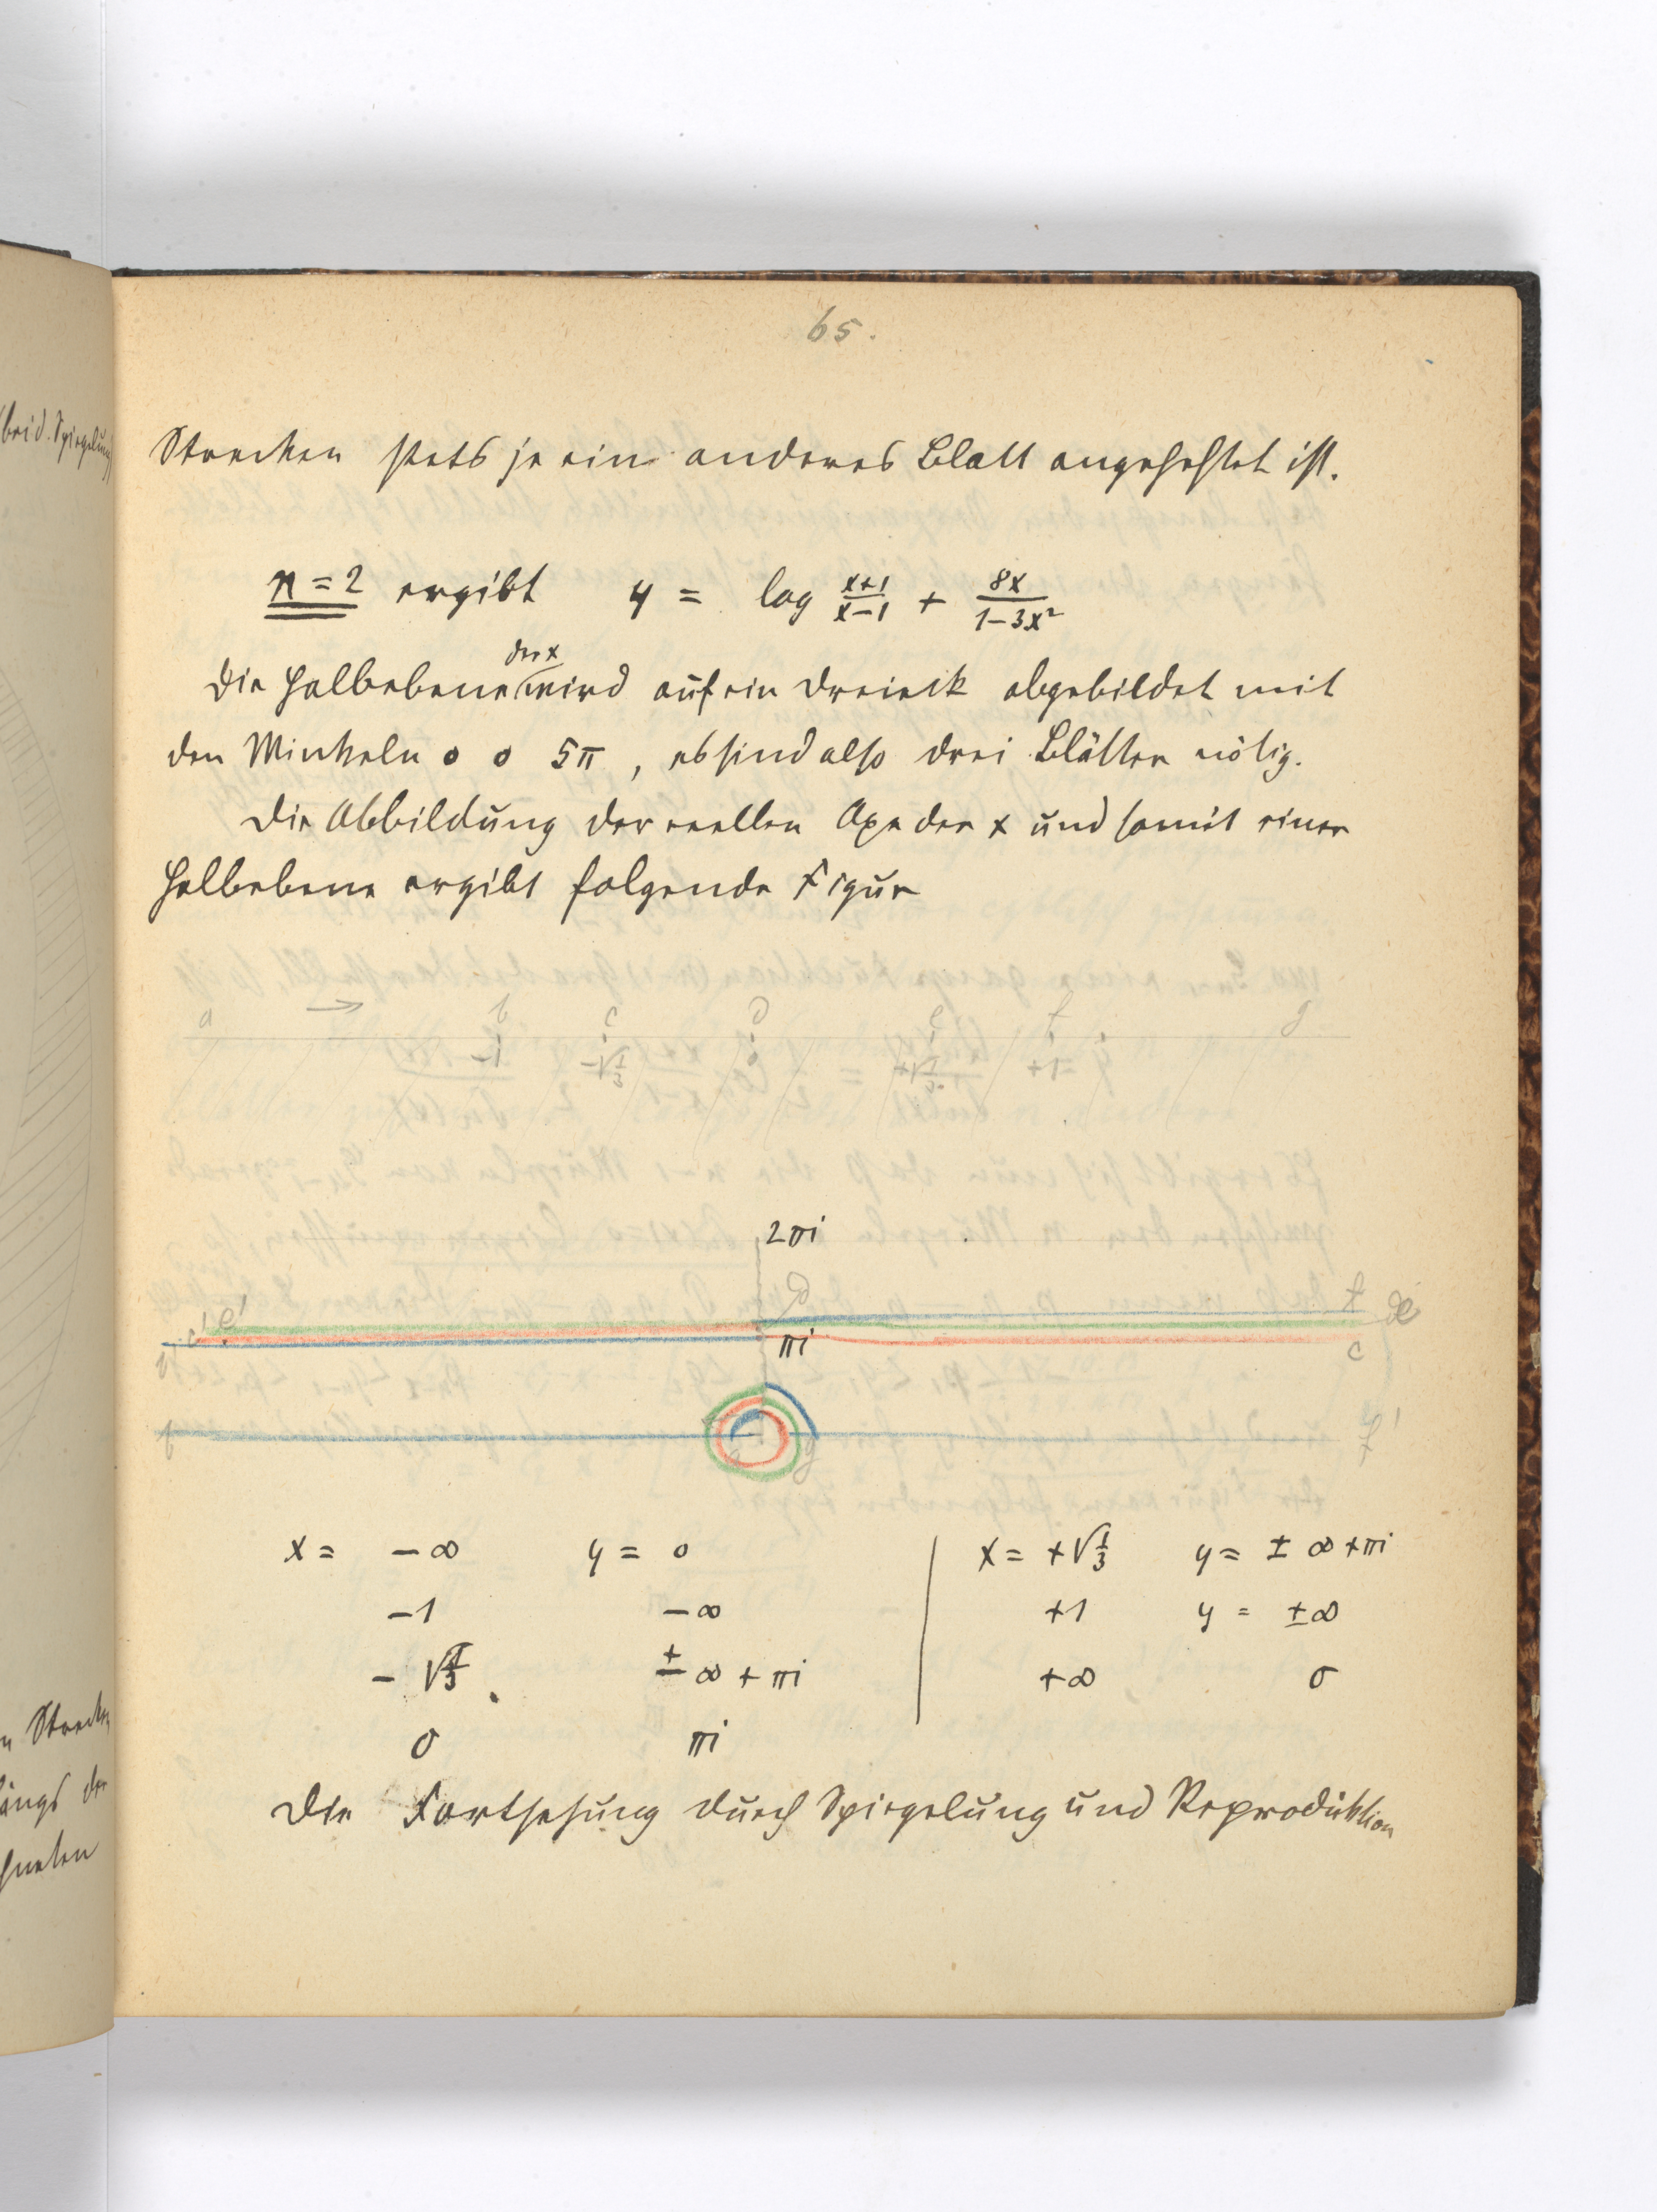 65.
Strecken stets je ein anderes Blatt angeheftet ist.
n = 2 ergibt y = log \frac{x+1}{x-1} + \frac{8x}{1-3x²}
der x
Die Halbebene wird auf ein Dreieck abgebildet mit
den Winkeln 0 0 5π, es sind also drei Blätter nötig.
Die Abbildung der reellen Axe der x und somit einer
Halbebene ergibt folgende Figur
a → b c d e f g
-1 -√\frac{1}{3} 0 +√\frac{1}{3} +1
2πi
d f
c' e' πi c
b
b f'
x = -∞ y = 0 | x = +√\frac{1}{3} y = ± ∞ + πi
-1 -∞ | +1 y = ±∞
-√\frac{1}{3} ± ∞ + πi | +∞ 0
0 πi
Die Fortsetzung durch Spiegelung und Reproduktion